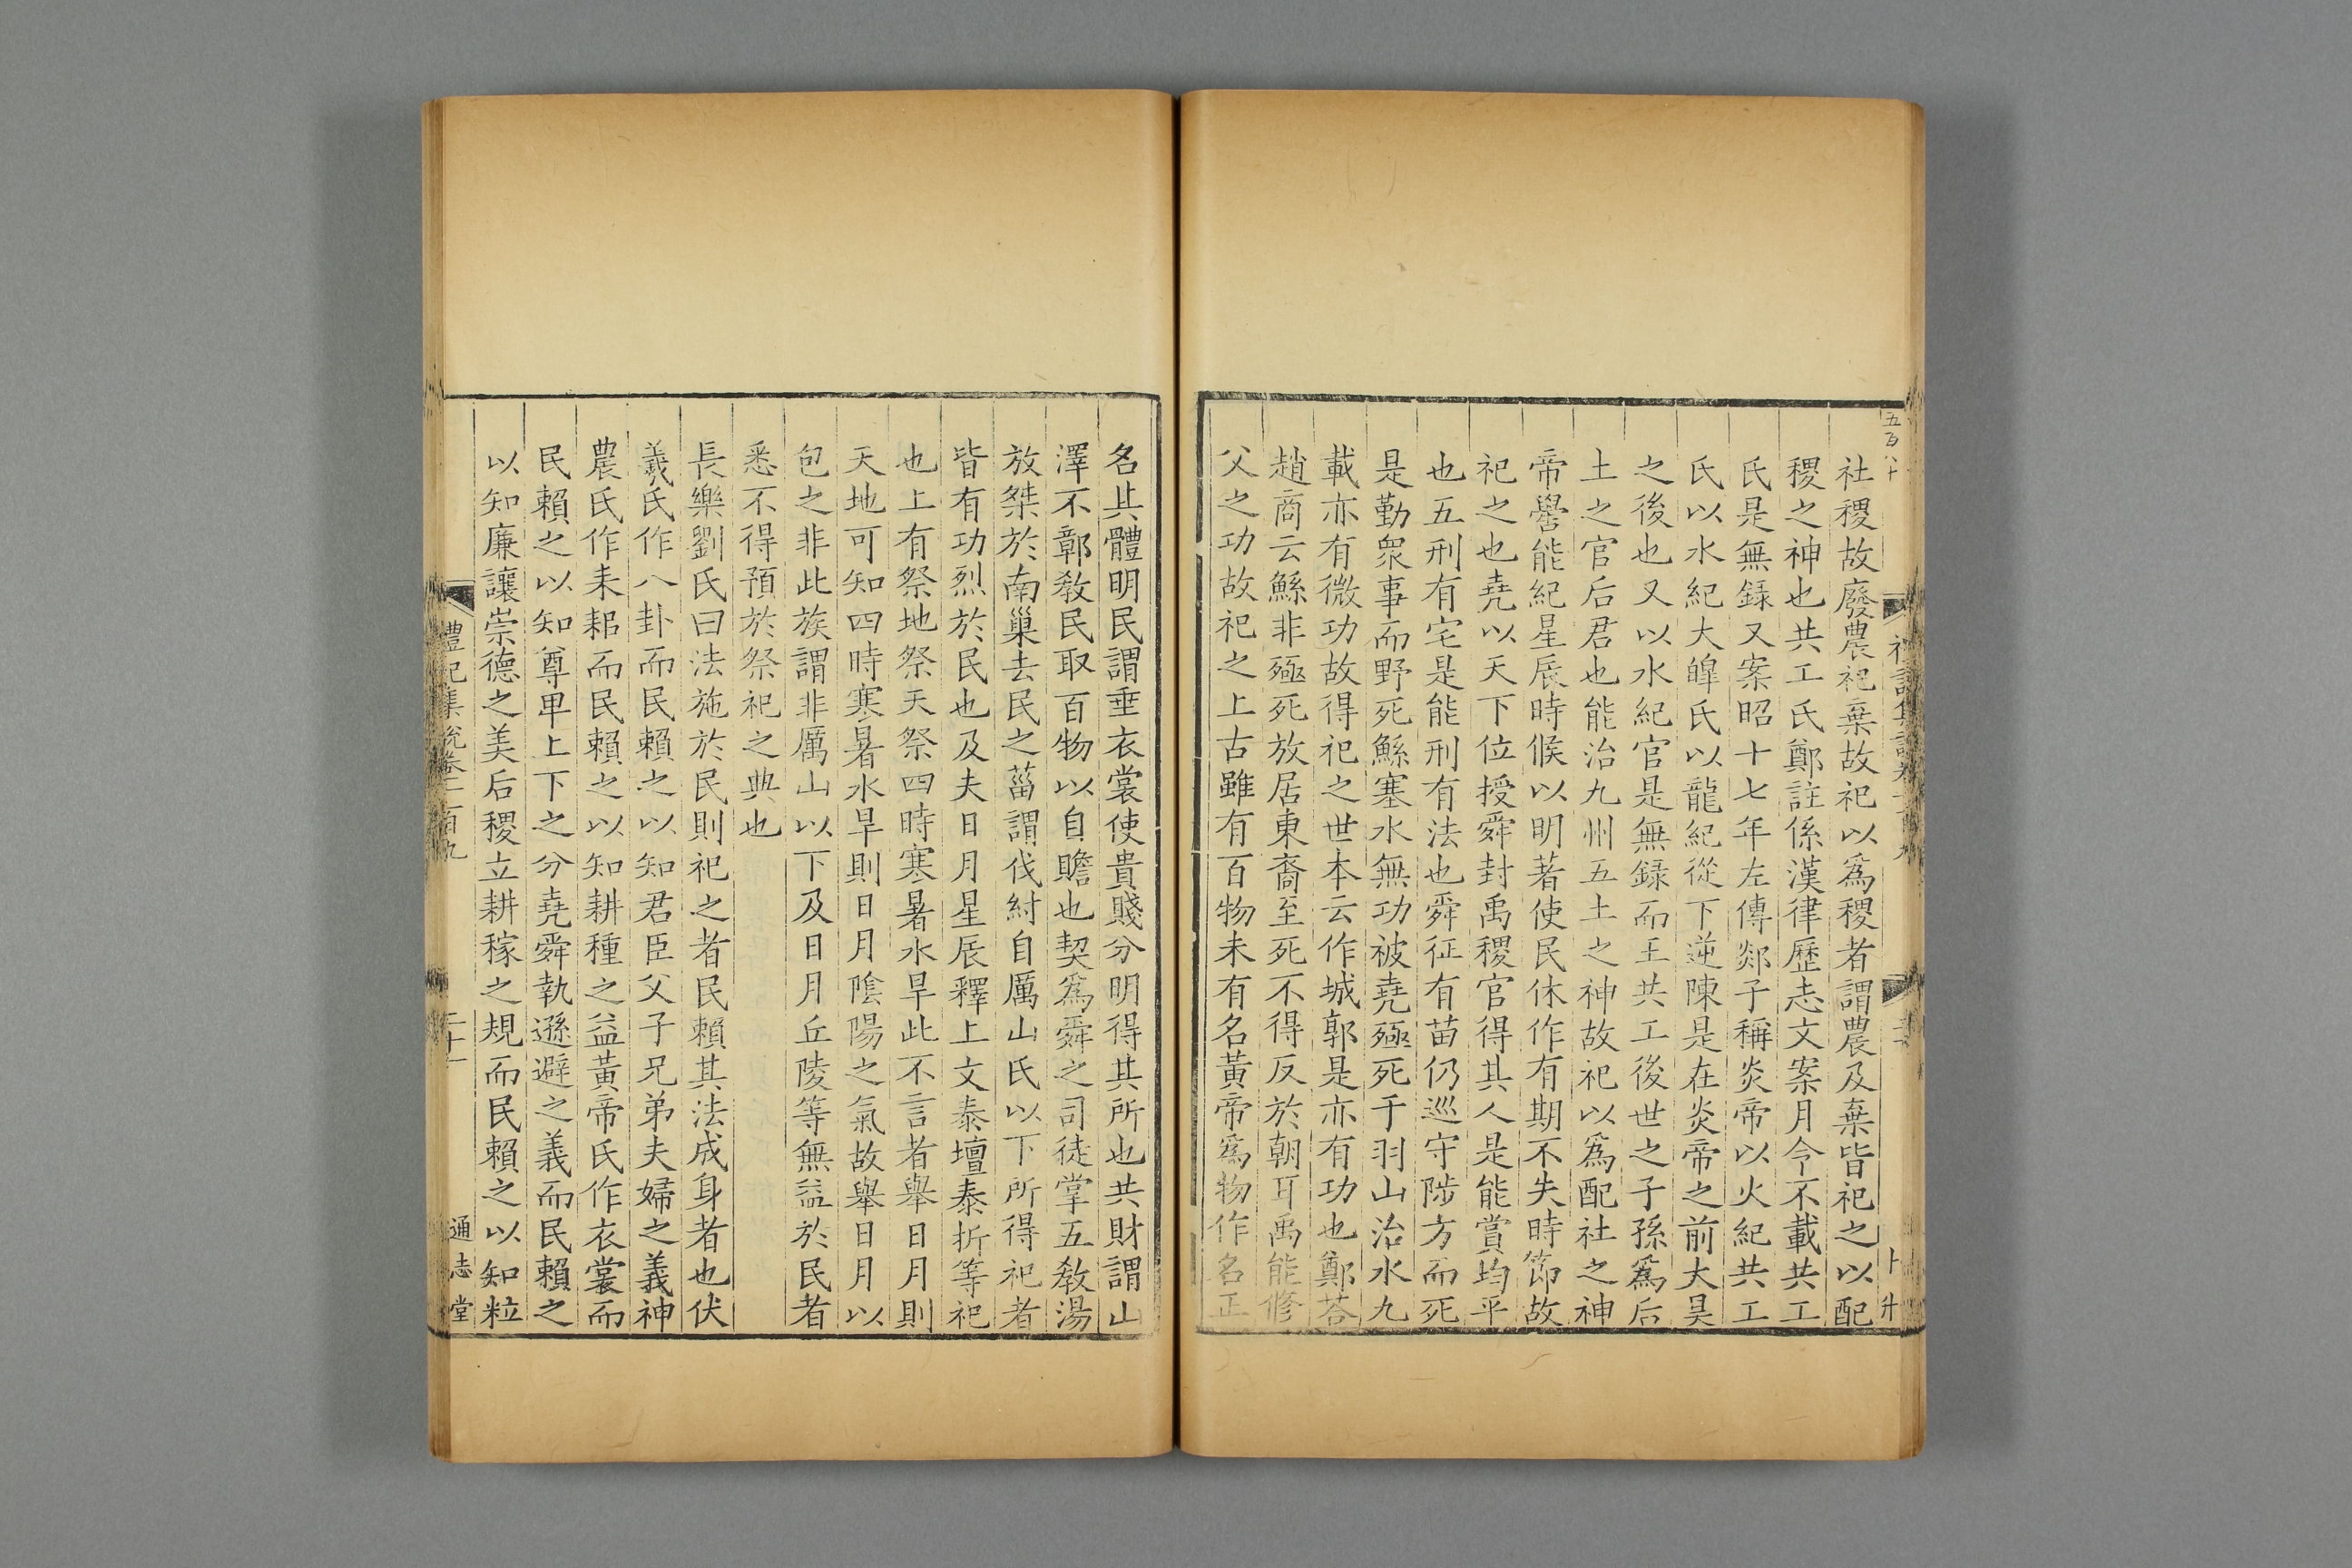 五百八十
社稷故廢農祀棄故祀以爲稷者謂農及棄皆祀之以配
稷之神也共工氏鄭註係漢律歷志文案月令不載共工
氏是無録又案昭十七年左傳郯子稱炎帝以火紀共工
氏以水紀大皥氏以龍紀從下逆陳是在炎帝之前大昊
之後也又以水紀官是無録而王共工後世之子孫爲后
土之官后君也能治九州五土之神故祀以爲配社之神
帝嚳能紀星辰時候以明著使民休作有期不失時節故
祀之也堯以天下位授舜封禹稷官得其人是能賞均平
也五刑有宅是能刑有法也舜征有苗仍巡守陟方而死
是勤衆事而野死鯀塞水無功被堯殛死于羽山治水九
載亦有微功故得祀之世本云作城郭是亦有功也鄭荅
趙商云鯀非殛死放居東裔至死不得反於朝耳禹能修
父之功故祀之上古雖有百物未有名黃帝爲物作名正
名其體明民謂垂衣裳使貴賤分明得其所也共財謂山
澤不鄣敎民取百物以自贍也契爲舜之司徒掌五敎湯
放桀於南巢去民之菑謂伐紂自厲山氏以下所得祀者
皆有功烈於民也及夫日月星辰釋上文泰壇泰折等祀
也上有祭地祭天祭四時寒暑水旱此不言者舉日月則
天地可知四時寒暑水旱則日月陰陽之氣故舉日月以
包之非此族謂非厲山以下及日月丘陵等無益於民者
悉不得預於祭祀之典也
長樂劉氏曰法施於民則祀之者民賴其法成身者也伏
羲氏作八卦而民賴之以知君臣父子兄弟夫婦之義神
農氏作耒耜而民賴之以知耕種之益黃帝氏作衣裳而
民賴之以知尊卑上下之分堯舜執遜避之義而民賴之
以知廉讓崇德之美后稷立耕稼之規而民賴之以知粒
禮記集説卷一百九
二十一
通志堂